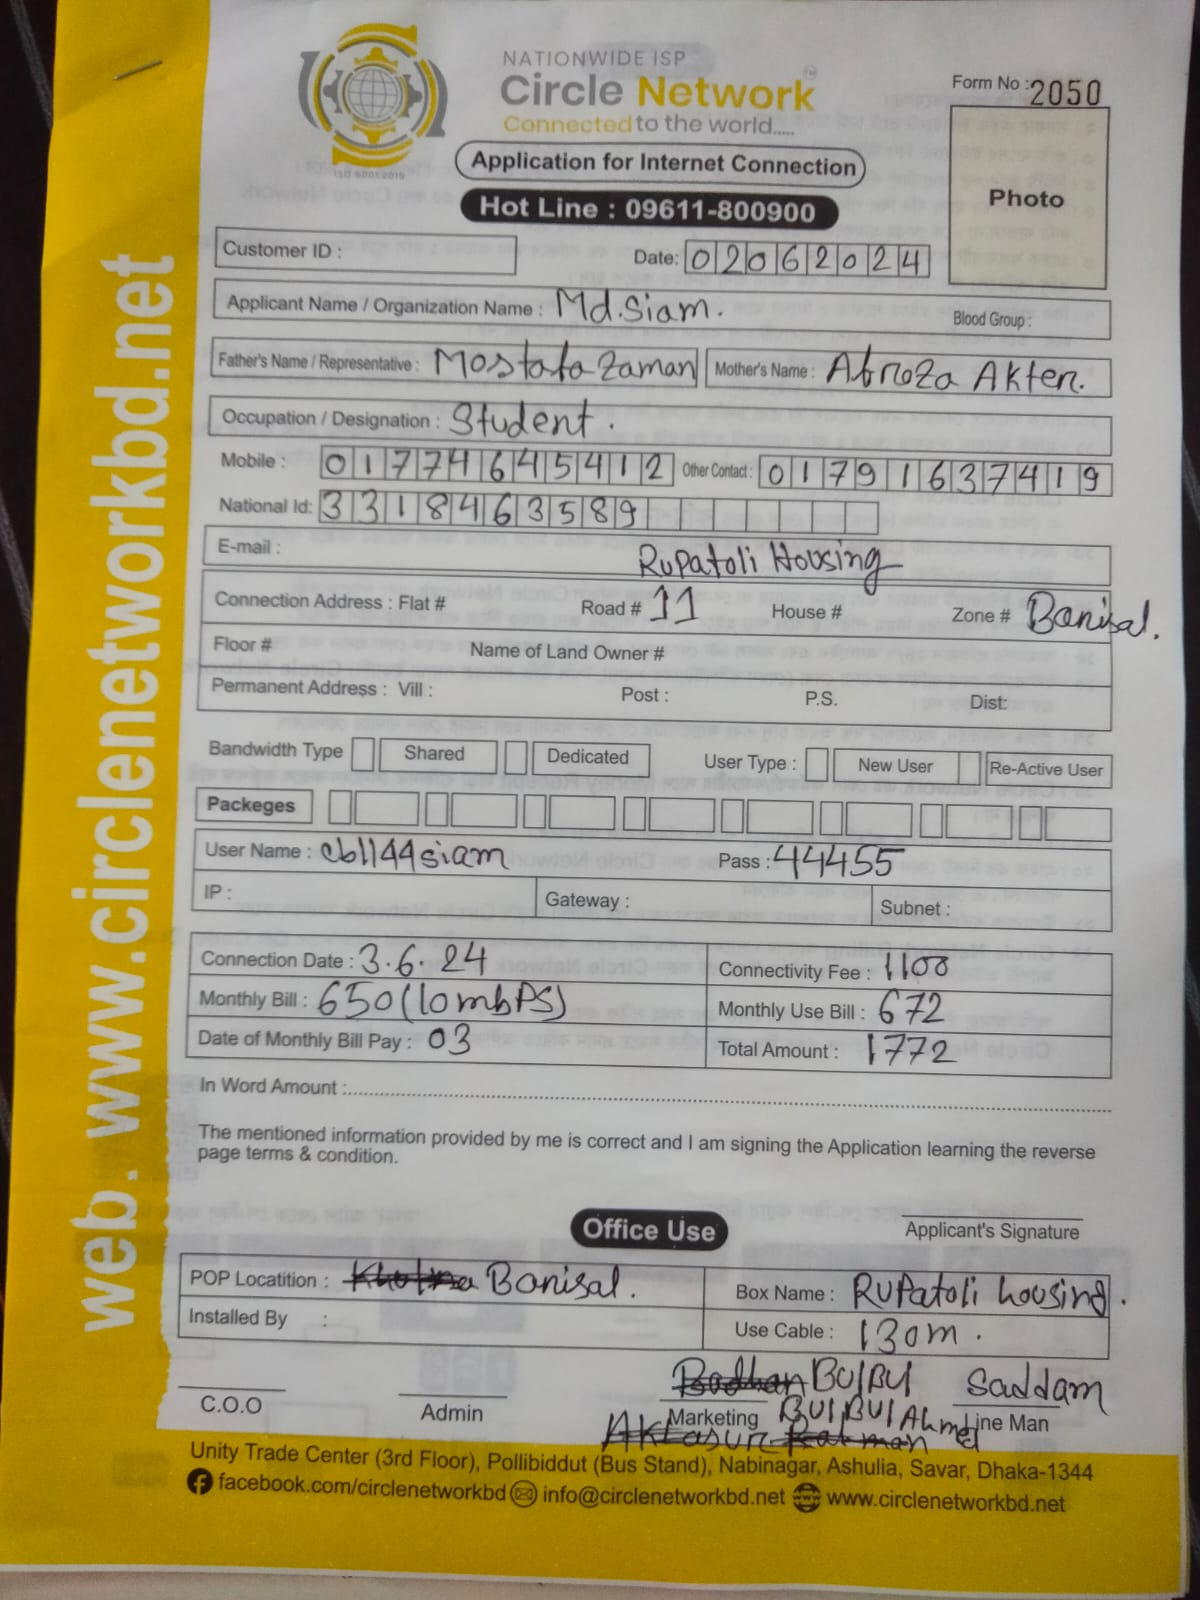 NATIONWIDE ISP
Circle Network
Connected to the world.....
ISO 9001:2015
Form No : 2050
Application for Internet Connection
Hot Line : 09611-800900
Photo
web. www.circlenetworkbd.net
Customer ID :
Date: 02062024
Applicant Name / Organization Name : Md. Siam.
Blood Group :
Father's Name / Representative : Mostafa Zaman
Mother's Name : Afroza Akter.
Occupation / Designation : Student.
Mobile : 01774645412 Other Contact : 01791637419
National Id: 3318463589
E-mail :
Rupatoli Housing
Connection Address : Flat # Road # 11 House # Zone # Barisal.
Floor # Name of Land Owner #
Permanent Address : Vill : Post : P.S. Dist:
Bandwidth Type Shared Dedicated User Type : New User Re-Active User
Packeges
User Name : cbl144siam Pass : 44455
IP : Gateway : Subnet :
Connection Date : 3.6.24 Connectivity Fee : 1100
Monthly Bill : 650 (10mbPS) Monthly Use Bill : 672
Date of Monthly Bill Pay : 03 Total Amount : 1772
In Word Amount :
The mentioned information provided by me is correct and I am signing the Application learning the reverse
page terms & condition.
Office Use
Applicant's Signature
POP Locatition : Khulna Barisal. Box Name : RuPatoli housing.
Installed By : Use Cable : 130m.
Badhan BulBul Saddam
C.O.O Admin Marketing BulBul Ahmed Line Man
Unity Trade Center (3rd Floor), Pollibiddut (Bus Stand), Nabinagar, Ashulia, Savar, Dhaka-1344
facebook.com/circlenetworkbd info@circlenetworkbd.net www.circlenetworkbd.net